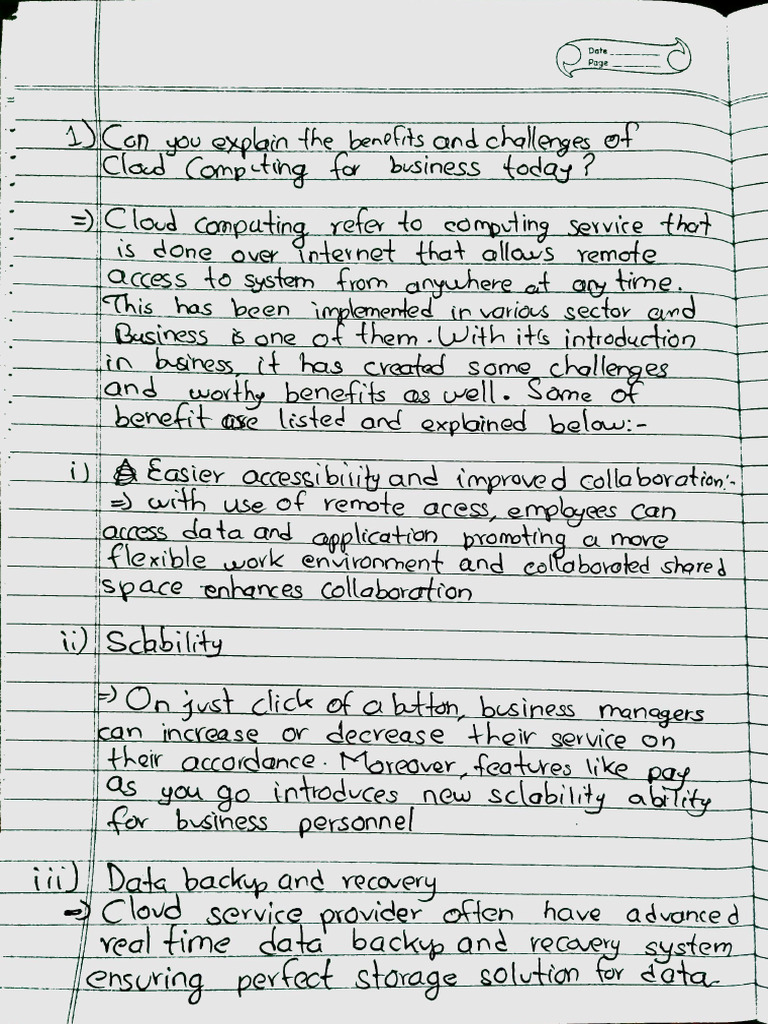 Date
Page
1) Can you explain the benefits and challenges of
Cloud Computing for business today?
=) Cloud computing refer to computing service that
is done over internet that allows remote
access to system from anywhere at any time.
This has been implemented in various sector and
Business is one of them. With it's introduction
in business, it has created some challenges
and worthy benefits as well. Some of
benefit are listed and explained below:-
i) Easier accessibility and improved collaboration:-
=) with use of remote acess, employees can
access data and application promoting a more
flexible work environment and collaborated shared
space enhances collaboration
ii) Sclability
=) On just click of a button, business managers
can increase or decrease their service on
their accordance. Moreover, features like pay
as you go introduces new sclability ability
for business personnel
iii) Data backup and recovery
=) Cloud service provider often have advanced
real time data backup and recovery system
ensuring perfect storage solution for data